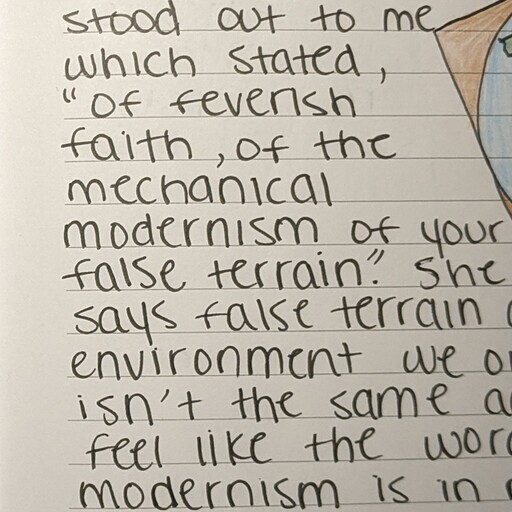 stood out to me
which stated,
"of feverish
faith, of the
mechanical
modernism of your
false terrain." She
says false terrain
environment we
isn't the same
feel like the
modernism is in